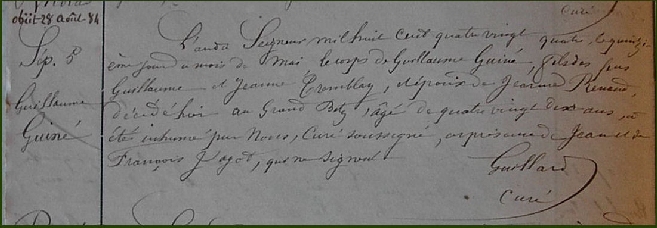 obiit 28 août 84
curé
Sép. 8
Guillaume
Guiné
L'an du Seigneur mil huit cent quatre vingt quatre, le quinzi
ème jour du mois de Mai le corps de Guillaume Guiné, fils des feus
Guillaume et Jeanne Tremblay, et époux de Jeanne Renaud,
décédé hier au Grand Boty, âgé de quatre vingt dix ans, a
été inhumé par Nous, Curé soussigné, en présence de Jean et de
François Jagot, qui ne signent
Guillard
curé